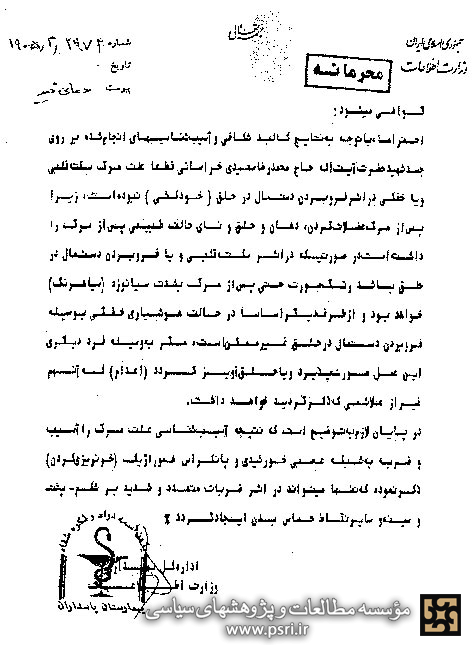 جمهوری اسلامی ایران
وزارت اطلاعات
بسمه تعالی
شماره
تاریخ
پیوست
محرمانه
گواهی میشود:
احتراماً، باتوجه به نتایج کالبد شکافی و آسیب‌شناسیهای انجام‌شده بر روی
جسد شهید حضرت آیت‌اله حاج محمدرضا سعیدی خراسانی قطعاً علت مرگ سکته قلبی
ویا خفگی در اثر فروبردن دستمال در حلق (خودکشی) نبوده است، زیرا
پس از مرگ عضلات گردن، دهان و حلق و نای حالت طبیعی پس از مرگ را
داشته است در صورتیکه در اثر سکته قلبی و یا فروبردن دستمال در
حلق باشد رنگ صورت حتی پس از مرگ بشدت سیانوزه (سیاهرنگ)
خواهد بود و از طرف دیگر اساساً در حالت هوشیاری خفگی بوسیله
فروبردن دستمال در حلق غیر ممکن است، مگر بوسیله فرد دیگری
این عمل صورت پذیرد ویا حلق‌آویز گردد (اعدام) که آنهم
غیر از علائمی که ذکر گردید خواهد داشت.
در پایان لازم به توضیح است که نتیجه آسیب‌شناسی علت مرگ را آسیب
و ضربه به شبکه عصبی خورشیدی و پانکراس هموراژیک (خونریزی‌کردن)
ذکر نموده که تنها میتواند در اثر ضربات متعدد و شدید بر شکم - پشت
و سینه و سایر نقاط حساس بدن ایجاد گردد
اداره کل
وزارت
بیمارستان پاسداران
مؤسسه مطالعات و پژوهشهای سیاسی
www.psri.ir